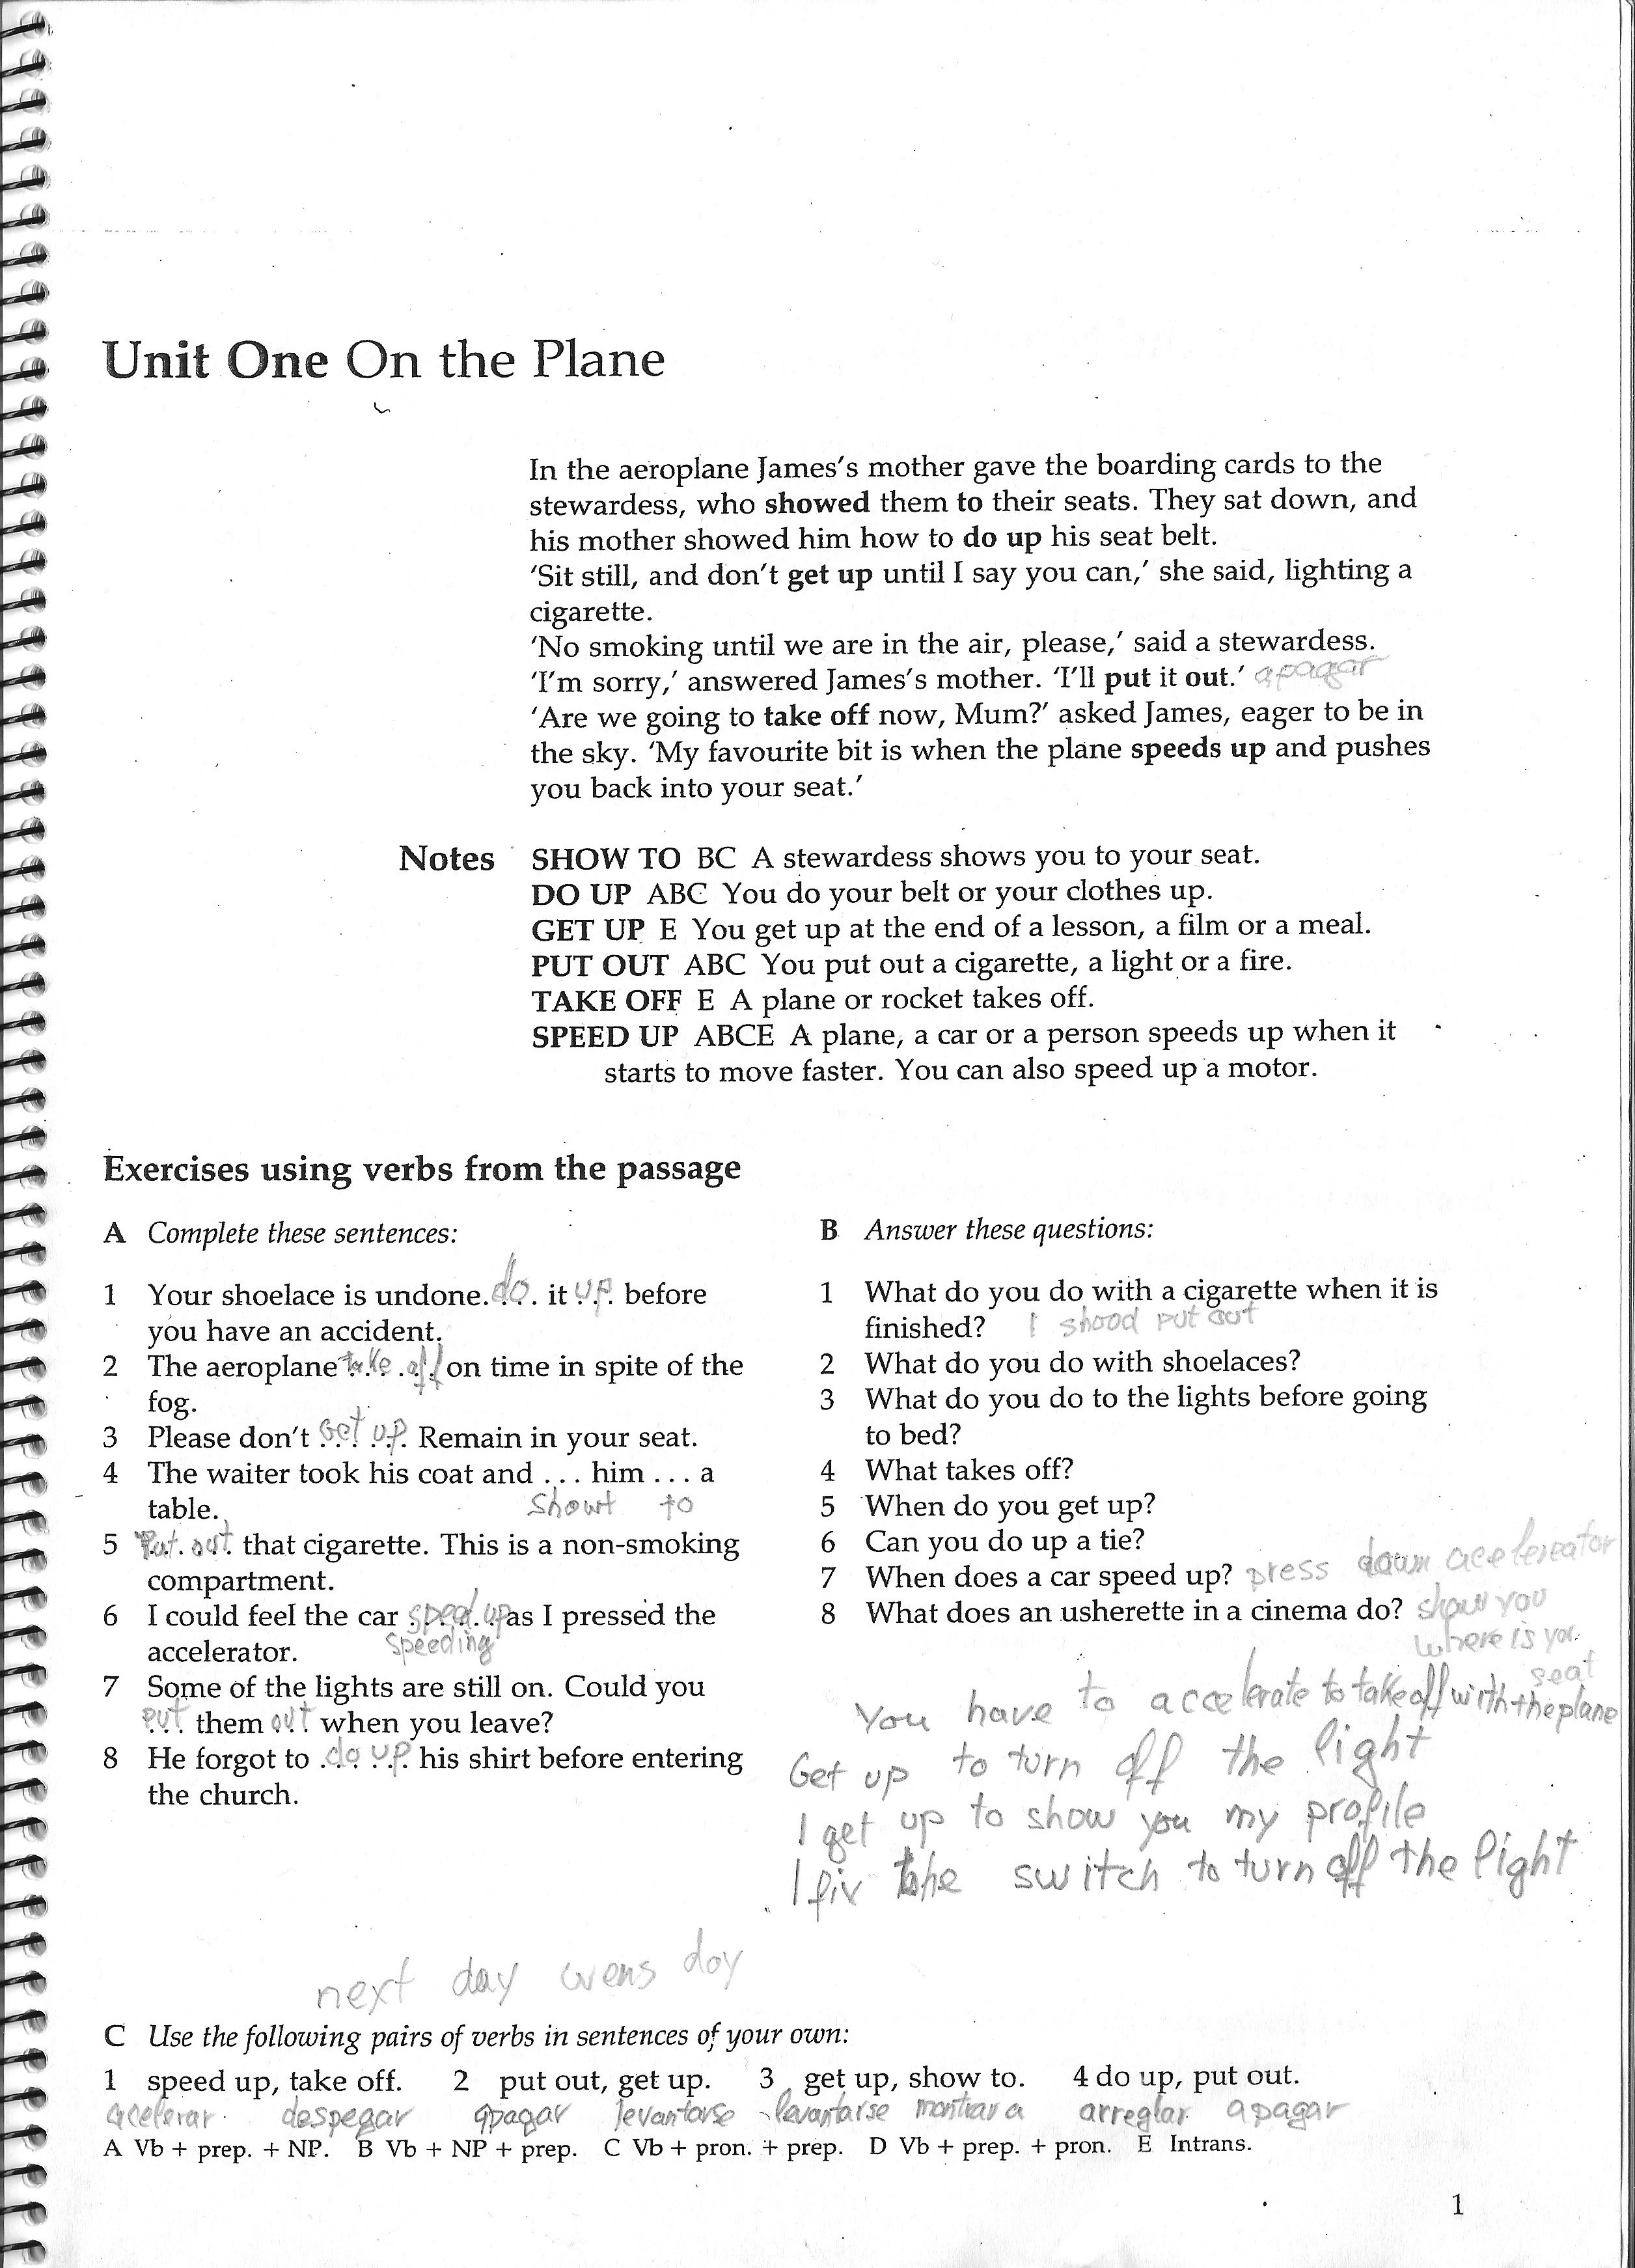 Unit One On the Plane
In the aeroplane James's mother gave the boarding cards to the
stewardess, who showed them to their seats. They sat down, and
his mother showed him how to do up his seat belt.
'Sit still, and don't get up until I say you can,' she said, lighting a
cigarette.
'No smoking until we are in the air, please,' said a stewardess.
'I'm sorry,' answered James's mother. 'I'll put it out.' apagar
'Are we going to take off now, Mum?' asked James, eager to be in
the sky. 'My favourite bit is when the plane speeds up and pushes
you back into your seat.'
Notes SHOW TO BC A stewardess shows you to your seat.
DO UP ABC You do your belt or your clothes up.
GET UP E You get up at the end of a lesson, a film or a meal.
PUT OUT ABC You put out a cigarette, a light or a fire.
TAKE OFF E A plane or rocket takes off.
SPEED UP ABCE A plane, a car or a person speeds up when it
starts to move faster. You can also speed up a motor.
Exercises using verbs from the passage
A Complete these sentences:
1 Your shoelace is undone. do it up before
you have an accident.
2 The aeroplane take off on time in spite of the
fog.
3 Please don't Get up. Remain in your seat.
4 The waiter took his coat and ... him ... a
table. showt to
5 Put out that cigarette. This is a non-smoking
compartment.
6 I could feel the car speed up as I pressed the
accelerator. speeding
7 Some of the lights are still on. Could you
put them out when you leave?
8 He forgot to do up his shirt before entering
the church.
B Answer these questions:
1 What do you do with a cigarette when it is
finished? I shood put out
2 What do you do with shoelaces?
3 What do you do to the lights before going
to bed?
4 What takes off?
5 When do you get up?
6 Can you do up a tie?
7 When does a car speed up? press down acelereator
8 What does an usherette in a cinema do? show you
where is you
seat
You have to accelerate to take off with the plane
Get up to turn off the light
I get up to show you my profile
I fix the switch to turn off the light
next day
C Use the following pairs of verbs in sentences of your own:
1 speed up, take off. 2 put out, get up. 3 get up, show to. 4 do up, put out.
acelerar despegar apagar levantarse levantarse arreglar apagar
A Vb + prep. + NP. B Vb + NP + prep. C Vb + pron. + prep. D Vb + prep. + pron. E Intrans.
1